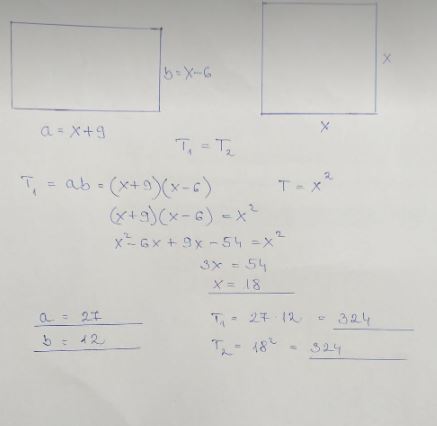 b = x-6
x
a = x+9
x
T₁ = T₂
T₁ = ab = (x+9)(x-6)
T = x²
(x+9)(x-6) = x²
x² - 6x + 9x - 54 = x²
3x = 54
x = 18
a = 27
T₁ = 27·12 = 324
b = 12
T₂ = 18² = 324